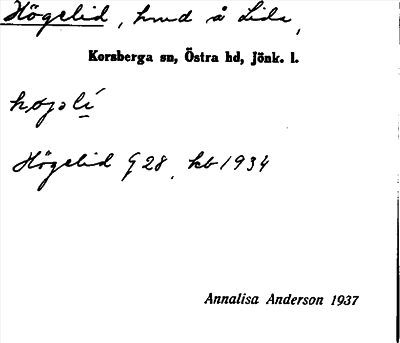 Högelid, hmd å Lida,
Korsberga sn, Östra hd, Jönk. l.
Högelid G 28, kb 1934
Annalisa Anderson 1937